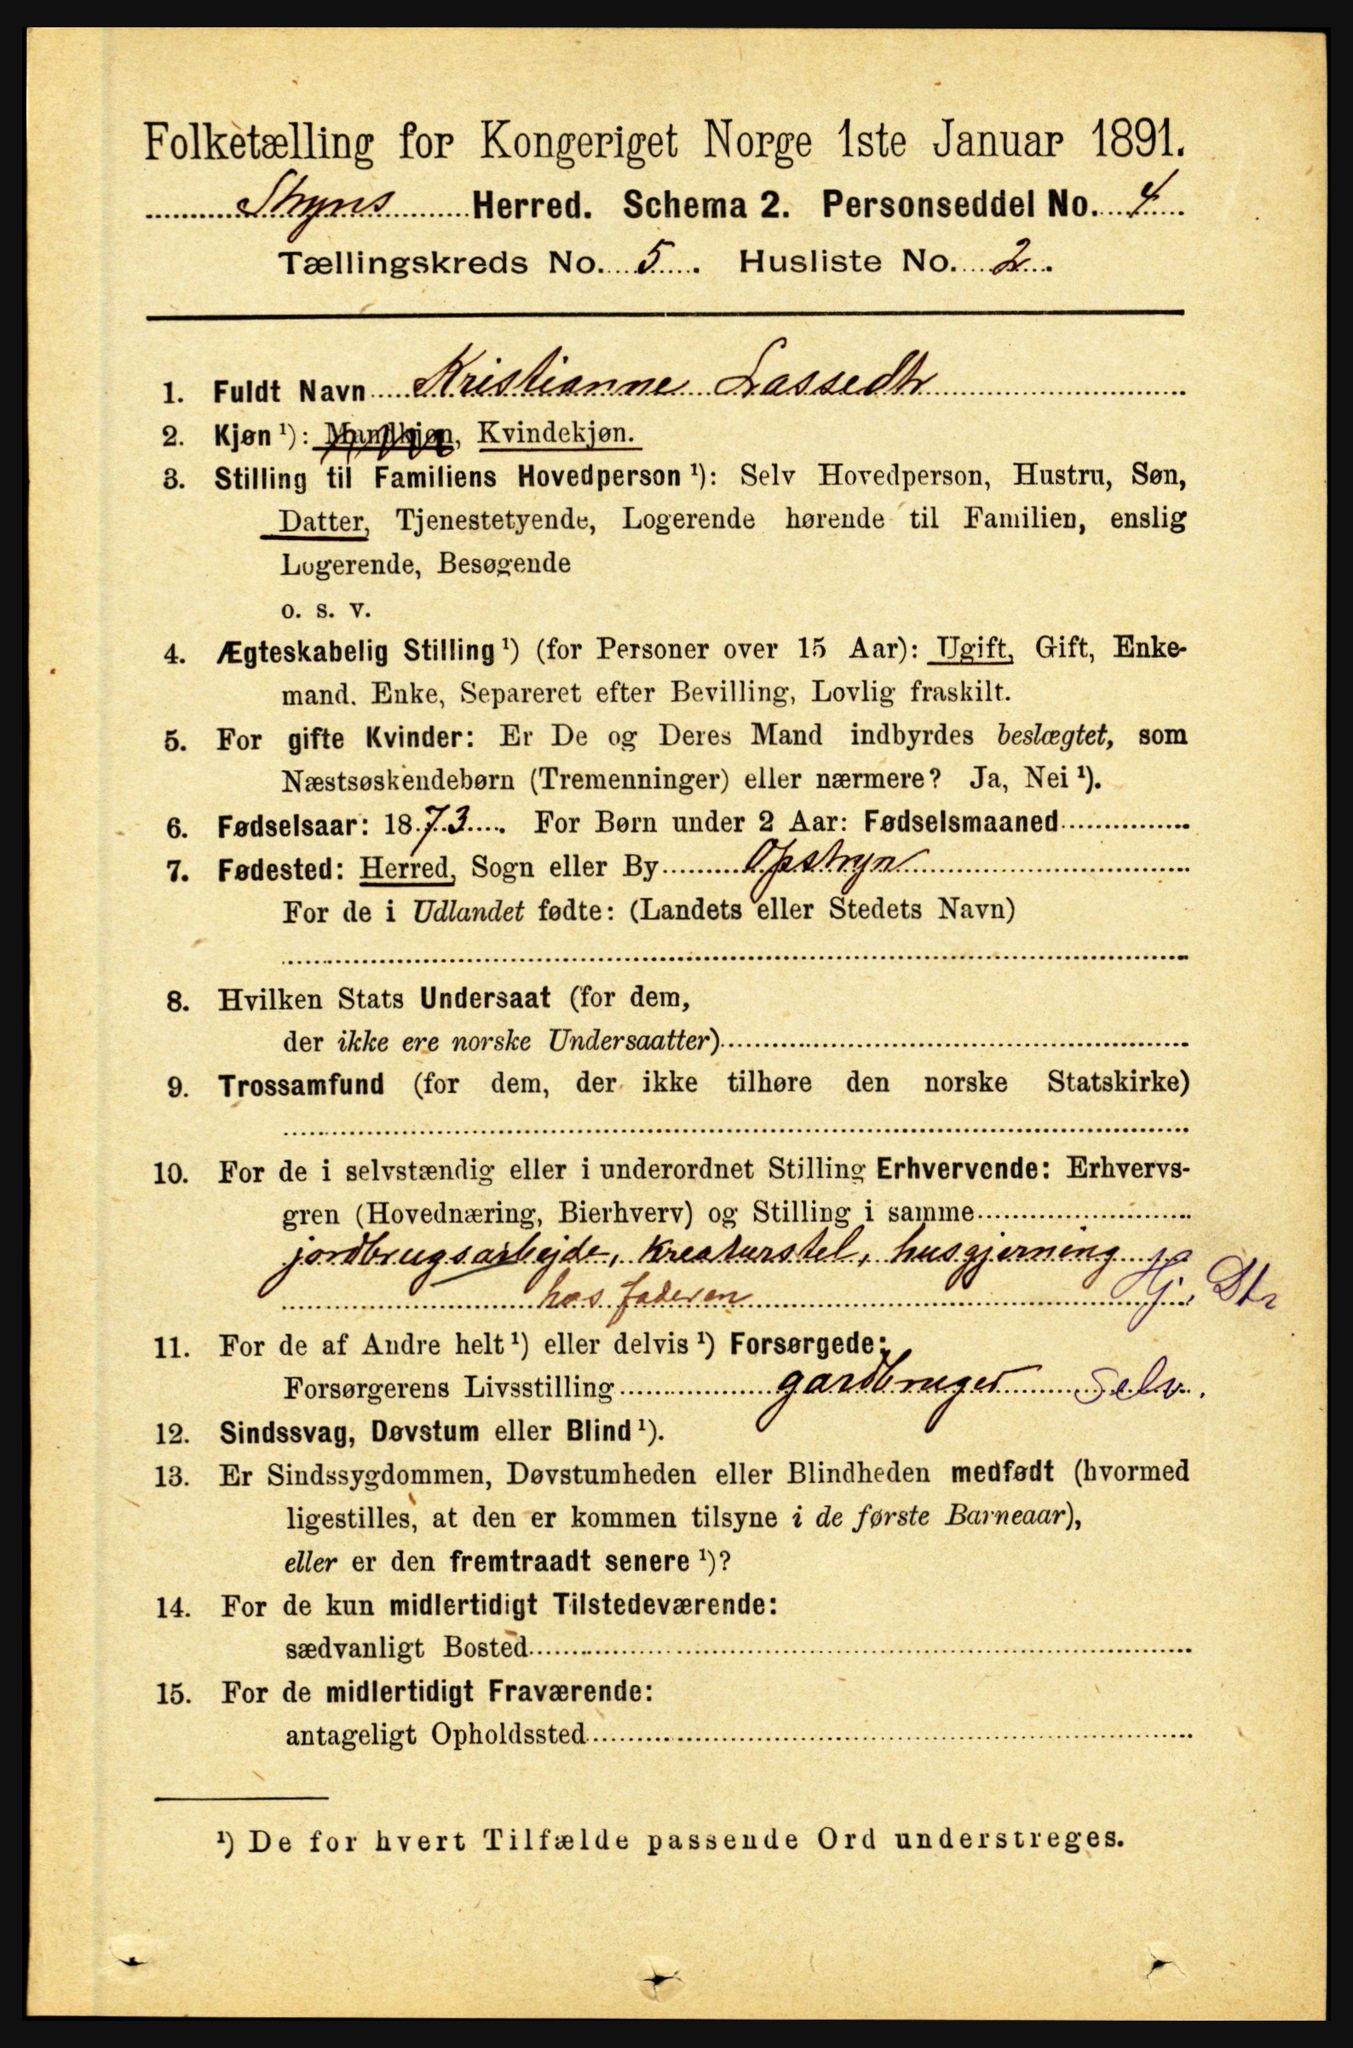 Folketælling for Kongeriget Norge 1ste Januar 1891.
Stryns Herred. Schema 2. Personseddel No. 4
Tællingskreds No. 5. Husliste No. 2.
1. Fuldt Navn Kristianne Lassedtr
2. Kjøn ¹): Mandkjøn, Kvindekjøn.
3. Stilling til Familiens Hovedperson ¹): Selv Hovedperson, Hustru, Søn,
Datter, Tjenestetyende, Logerende hørende til Familien, enslig
Logerende, Besøgende
o. s. v.
4. Ægteskabelig Stilling ¹) (for Personer over 15 Aar): Ugift, Gift, Enke-
mand. Enke, Separeret efter Bevilling, Lovlig fraskilt.
5. For gifte Kvinder: Er De og Deres Mand indbyrdes beslægtet, som
Næstsøskendebørn (Tremenninger) eller nærmere? Ja, Nei ¹).
6. Fødselsaar: 1873. For Børn under 2 Aar: Fødselsmaaned
7. Fødested: Herred, Sogn eller By Opstryn
For de i Udlandet fødte: (Landets eller Stedets Navn)
8. Hvilken Stats Undersaat (for dem,
der ikke ere norske Undersaatter)
9. Trossamfund (for dem, der ikke tilhøre den norske Statskirke)
10. For de i selvstændig eller i underordnet Stilling Erhvervende: Erhvervs-
gren (Hovednæring, Bierhverv) og Stilling i samme
jordbrugsarbejde, kreaturstel, husgjerning ja
hos faderen Hj. Dtr
11. For de af Andre helt ¹) eller delvis ¹) Forsørgede:
Forsørgerens Livsstilling gardbruger Selv.
12. Sindssvag, Døvstum eller Blind ¹).
13. Er Sindssygdommen, Døvstumheden eller Blindheden medfødt (hvormed
ligestilles, at den er kommen tilsyne i de første Barneaar),
eller er den fremtraadt senere ¹)?
14. For de kun midlertidigt Tilstedeværende:
sædvanligt Bosted
15. For de midlertidigt Fraværende:
antageligt Opholdssted
¹) De for hvert Tilfælde passende Ord understreges.